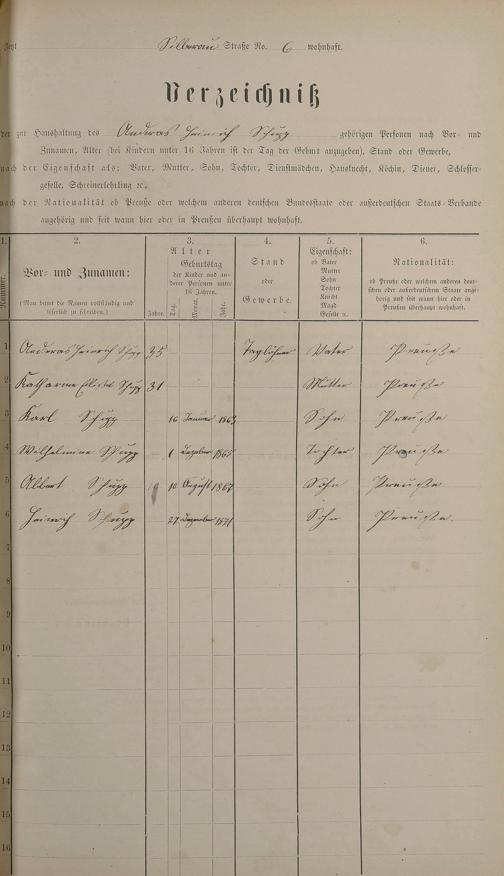 Jetzt Silberau Straße No. 6 wohnhaft.
Verzeichniß
der zur Haushaltung des Andreas Heinrich Schupp gehörigen Personen nach Vor- und
Zunamen, Alter (bei Kindern unter 16 Jahren ist der Tag der Geburt anzugeben), Stand oder Gewerbe,
nach der Eigenschaft als: Vater, Mutter, Sohn, Tochter, Dienstmädchen, Hausknecht, Köchin, Diener, Schlosser-
geselle, Schreinerlehrling ꝛc.,
nach der Nationalität ob Preuße oder welchem anderen deutschen Bundesstaate oder außerdeutschen Staats-Verbande
angehörig und seit wann hier oder in Preußen überhaupt wohnhaft.
1. 2. 3. 4. 5. 6.
Nummer.
Vor- und Zunamen:
(Man bittet die Namen vollständig und
leserlich zu schreiben.)
Alter
Geburtstag
der Kinder und an-
derer Personen unter
16 Jahren.
Jahre. Tag. Monat. Jahr.
Stand
oder
Gewerbe.
Eigenschaft:
ob Vater
Mutter
Sohn
Tochter
Knecht
Magd
Geselle ꝛc.
Nationalität:
ob Preuße oder welchem anderen deut-
schen oder außerdeutschen Staate ange-
hörig und seit wann hier oder in
Preußen überhaupt wohnhaft.
1 Andreas Heinrich Schupp 35 Taglöhner Vater Preuße
2 Katharine Schupp 31 Mutter Preuße
3 Karl Schupp 16 Januar 1863 Sohn Preuße
4 Wilhelmine Schupp 1 Dezember 1865 Tochter Preuße
5 Albert Schupp 10 August 1867 Sohn Preuße
6 Heinrich Schupp 27 Dezember 1871 Sohn Preuße.
7
8
9
10
11
12
13
14
15
16